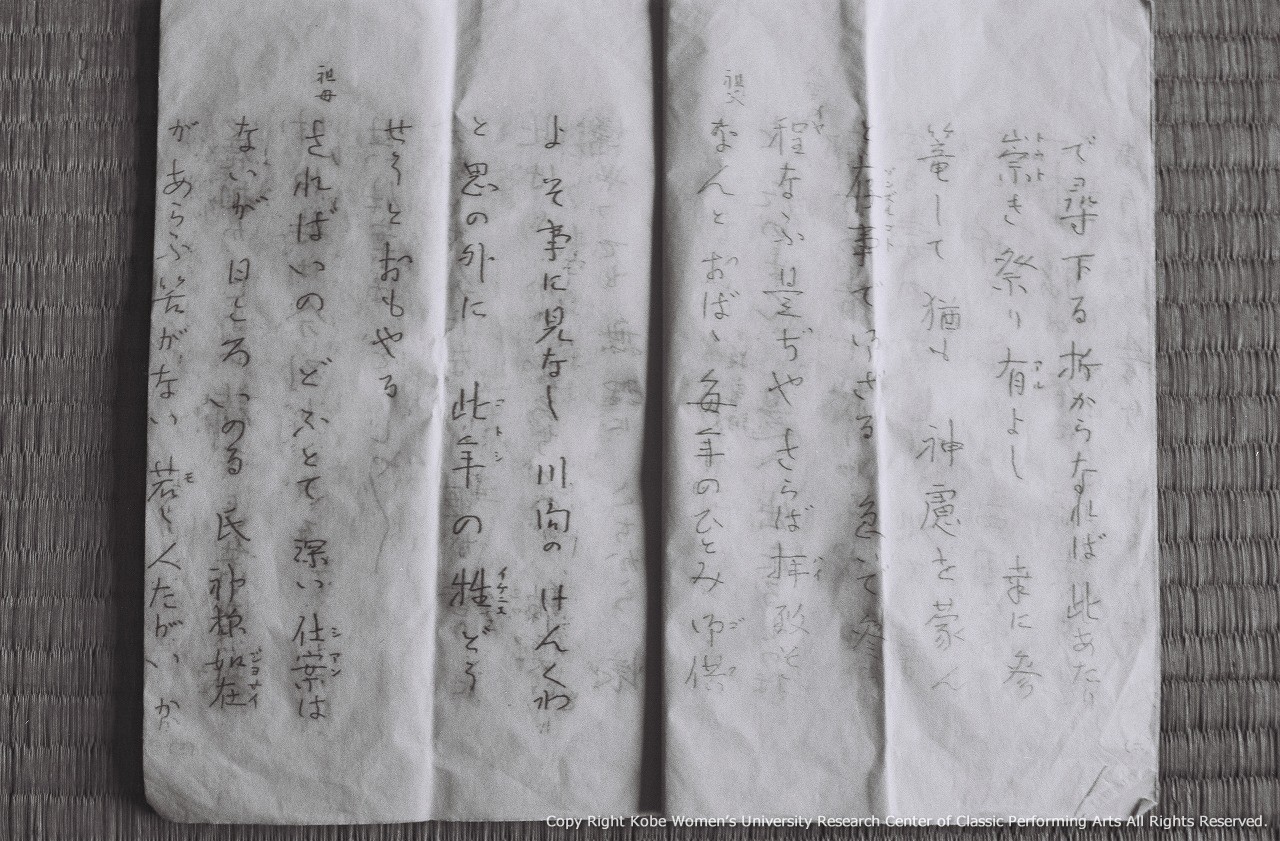 で云染下る折からなれば 此あたり
崇き祭り有よし 幸に参
トウト アル
篭して 猶も 神慮を蒙ん
と存事でござる 急で参
ゾンズル コト
程なふ是ぢや さらば拝致そ
ホド ハイ
祖父
なんとおばゝ 毎年のひとみ御供
ゴク
よそ事に見なし 川向の けんくわ
と思の外に 此年の牲どう
コトシ イケニエ
せうとおもやる
祖母
さればいの どふとて 深い仕案は
シアン
ないが 日ごろいのる 氏神様如在
ジヨサイ
があらふ筈がない 若し人たがいか
モ
Copy Right Kobe Women's University Research Center of Classic Performing Arts All Rights Reserved.